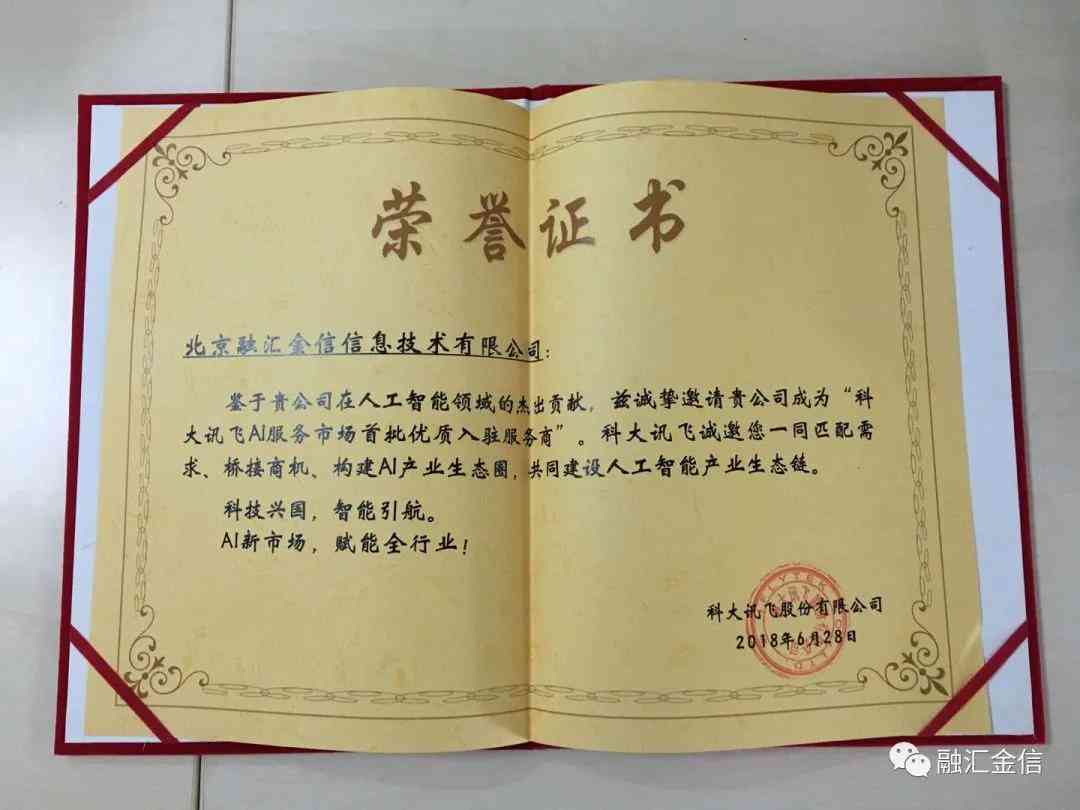 荣誉证书
北京融汇金信信息技术有限公司:
鉴于贵公司在人工智能领域的杰出贡献，兹诚挚邀请贵公司成为“科
大讯飞AI服务市场首批优质入驻服务商”。科大讯飞诚邀您一同匹配需
求、桥接商机、构建AI产业生态圈，共同建设人工智能产业生态链。
科技兴国，智能引航。
AI新市场，赋能全行业！
科大讯飞股份有限公司
2018年6月28日
融汇金信